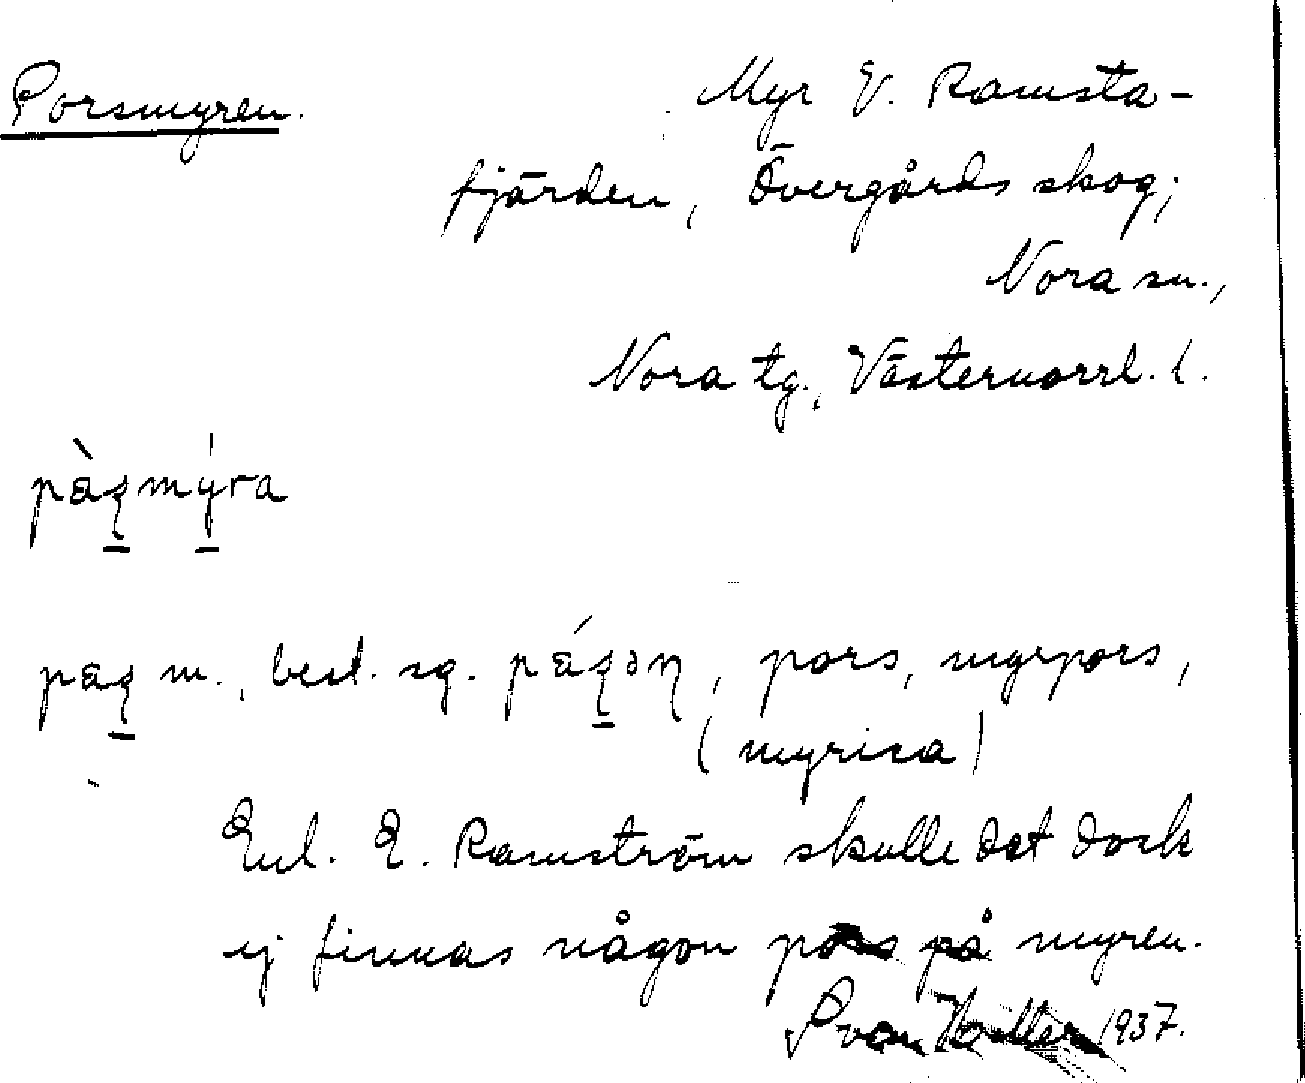 Porsmyren.
Myr V. Ramsta-
fjärden, Övergårds skog;
Nora sn.,
Nora tg., Västernorrl. l.
best. sg. pors, myrpors,
(myrica)
Enl. E. Ramström skulle det dock
ej finnas någon pors på myren.
1937.